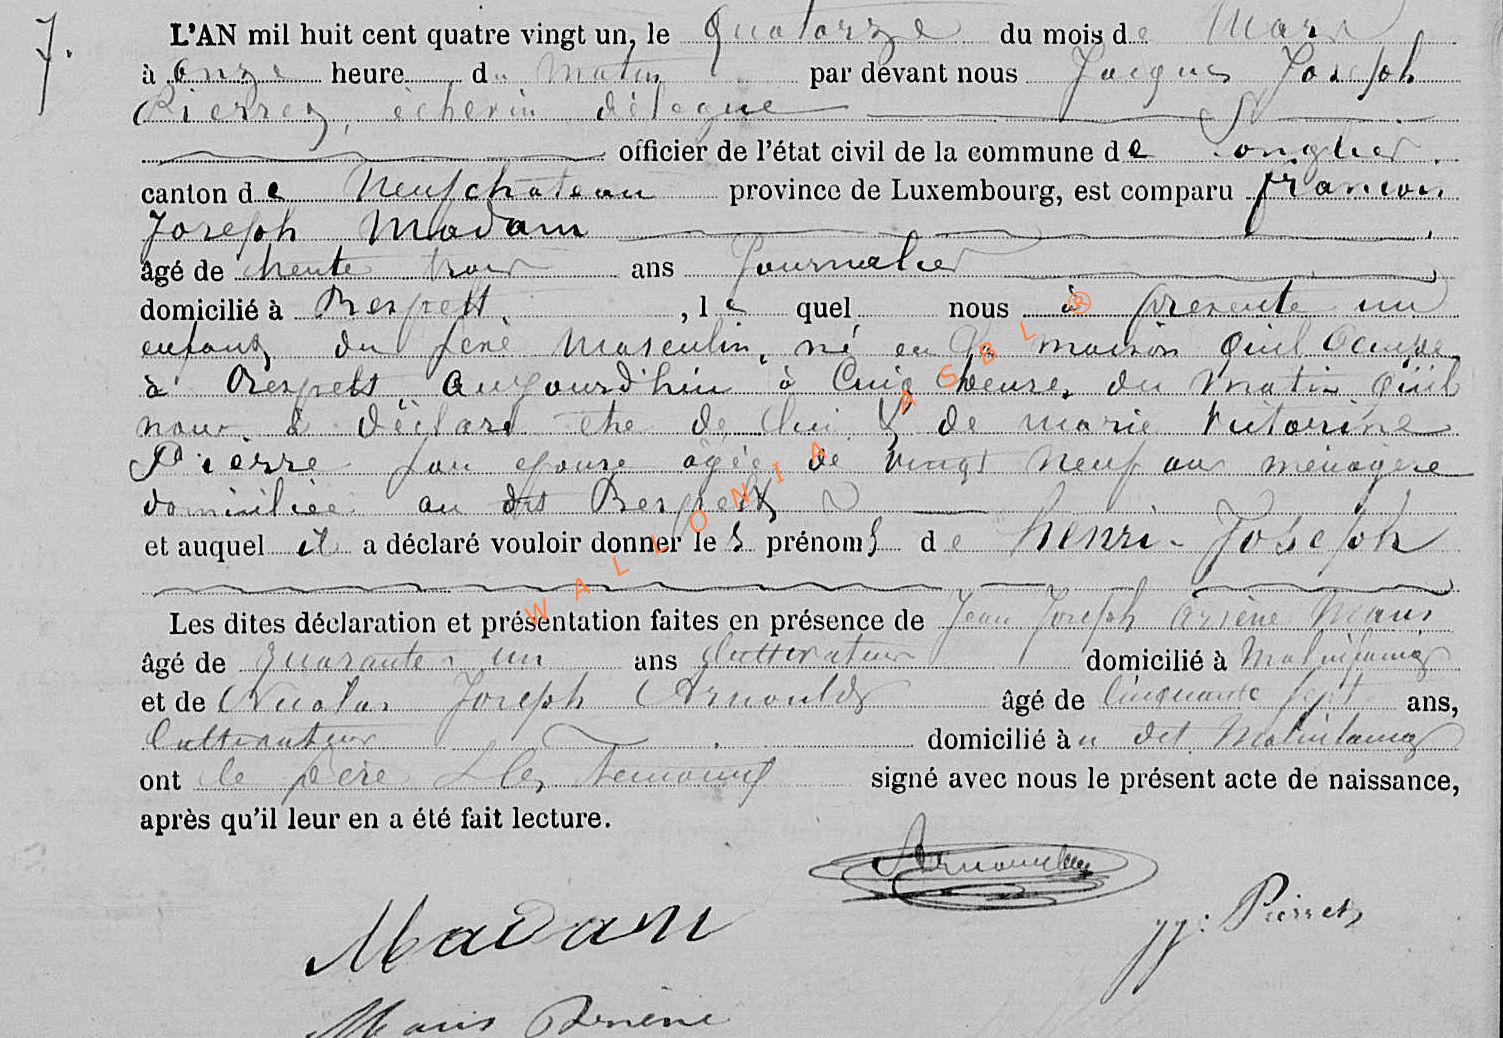 7.
L'AN mil huit cent quatre vingt un, le Quatorze du mois de Mars
à onze heure du Matin par devant nous Jacques Joseph
Pierret, échevin délégué
officier de l'état civil de la commune de Longlier
canton de Neufchateau province de Luxembourg, est comparu francois
Joseph Madam
âgé de trente trois ans Journalier
domicilié à Respelt, le quel nous à présenté un
enfant du sexe Masculin, né en la maison qu'il occupe
à Respelt aujourd'hui à Cinq heures du matin qu'il
nous à déclaré être de lui & de marie victorine
Pierre son épouse âgée de vingt neuf ans ménagère
domiciliée au dit Respelt
et auquel il a déclaré vouloir donner les prénoms de henri-Joseph
Les dites déclaration et présentation faites en présence de Jean Joseph Arsène Maus
âgé de quarante un ans Cultivateur domicilié à Molinfaing
et de Nicolas Joseph Arnould âgé de cinquante sept ans,
Cultivateur domicilié au dit Molinfaing
ont le père & les témoins signé avec nous le présent acte de naissance,
après qu'il leur en a été fait lecture.
Arnould
Madam
jj: Pierret
Maus Arsène
WALLONIA ASBL ®